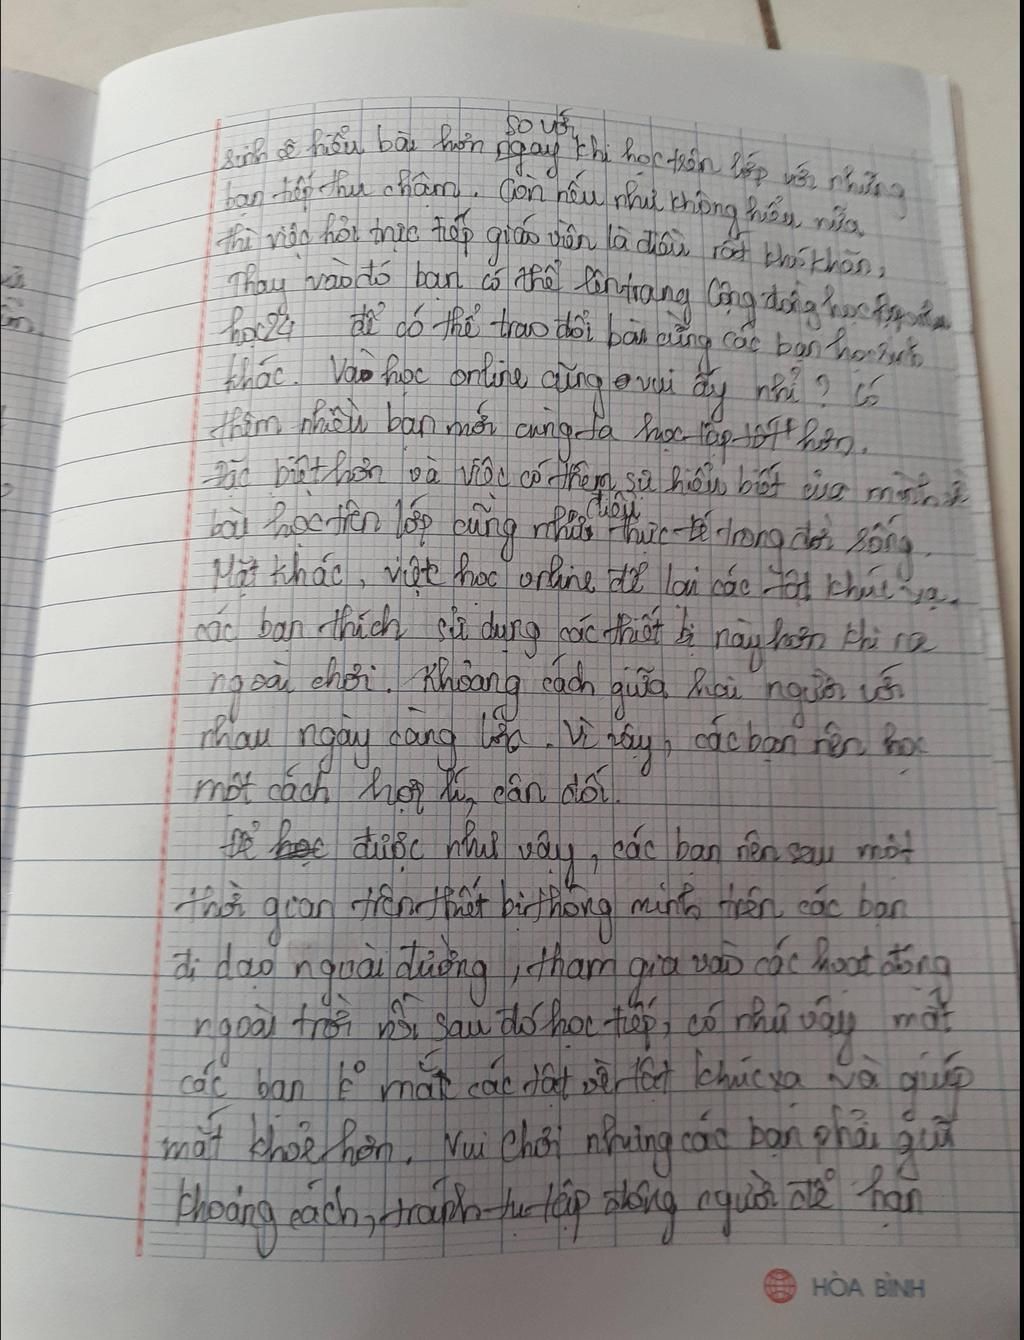 so với
sinh dễ hiểu bài hơn ngay khi học trên lớp với những
bạn tiếp thu chậm. Còn nếu như không hiểu nữa
thì việc hỏi trực tiếp giáo viên là điều rất khó khăn,
Thay vào đó bạn có thể lên trang Cộng đồng học
học24 để có thể trao đổi bài cùng các bạn học sinh
khác. Vào học online cũng vui ấy nhỉ? Có
thêm nhiều bạn mới cùng ta học tập tốt hơn.
Đặc biệt hơn là việc có thêm sự hiểu biết của mình ở
điều
bài học trên lớp cũng như thực tế trong đời sống.
Mặt khác, việt học online để lại các tật khúc xạ.
các bạn thích sử dụng các thiết bị này hơn khi ra
ngoài chơi. Khoảng cách giữa hai người với
nhau ngày càng lớn. Vì vậy, các bạn nên học
một cách hợp lí, cân đối.
Để học được như vậy, các bạn nên sau một
thời gian trên thiết bị thông minh trên các bạn
đi dạo ngoài đường, tham gia vào các hoạt động
ngoài trời rồi sau đó học tiếp, có như vậy mắt
các bạn k° mắc các tật về tật khúc xạ và giúp
mắt khoẻ hơn. Vui chơi nhưng các bạn phải giữ
khoảng cách, tránh tụ tập đông người để hạn
HÒA BÌNH